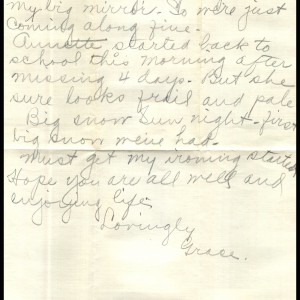 my big mirror. So we're just
coming along fine.
Annette started back to
school this morning after
missing 4 days. But she
sure looks frail and pale
Big snow Sun night-first
big snow we've had.
Must get my ironing started
Hope you are all well and
enjoying life.
Lovingly
Grace.